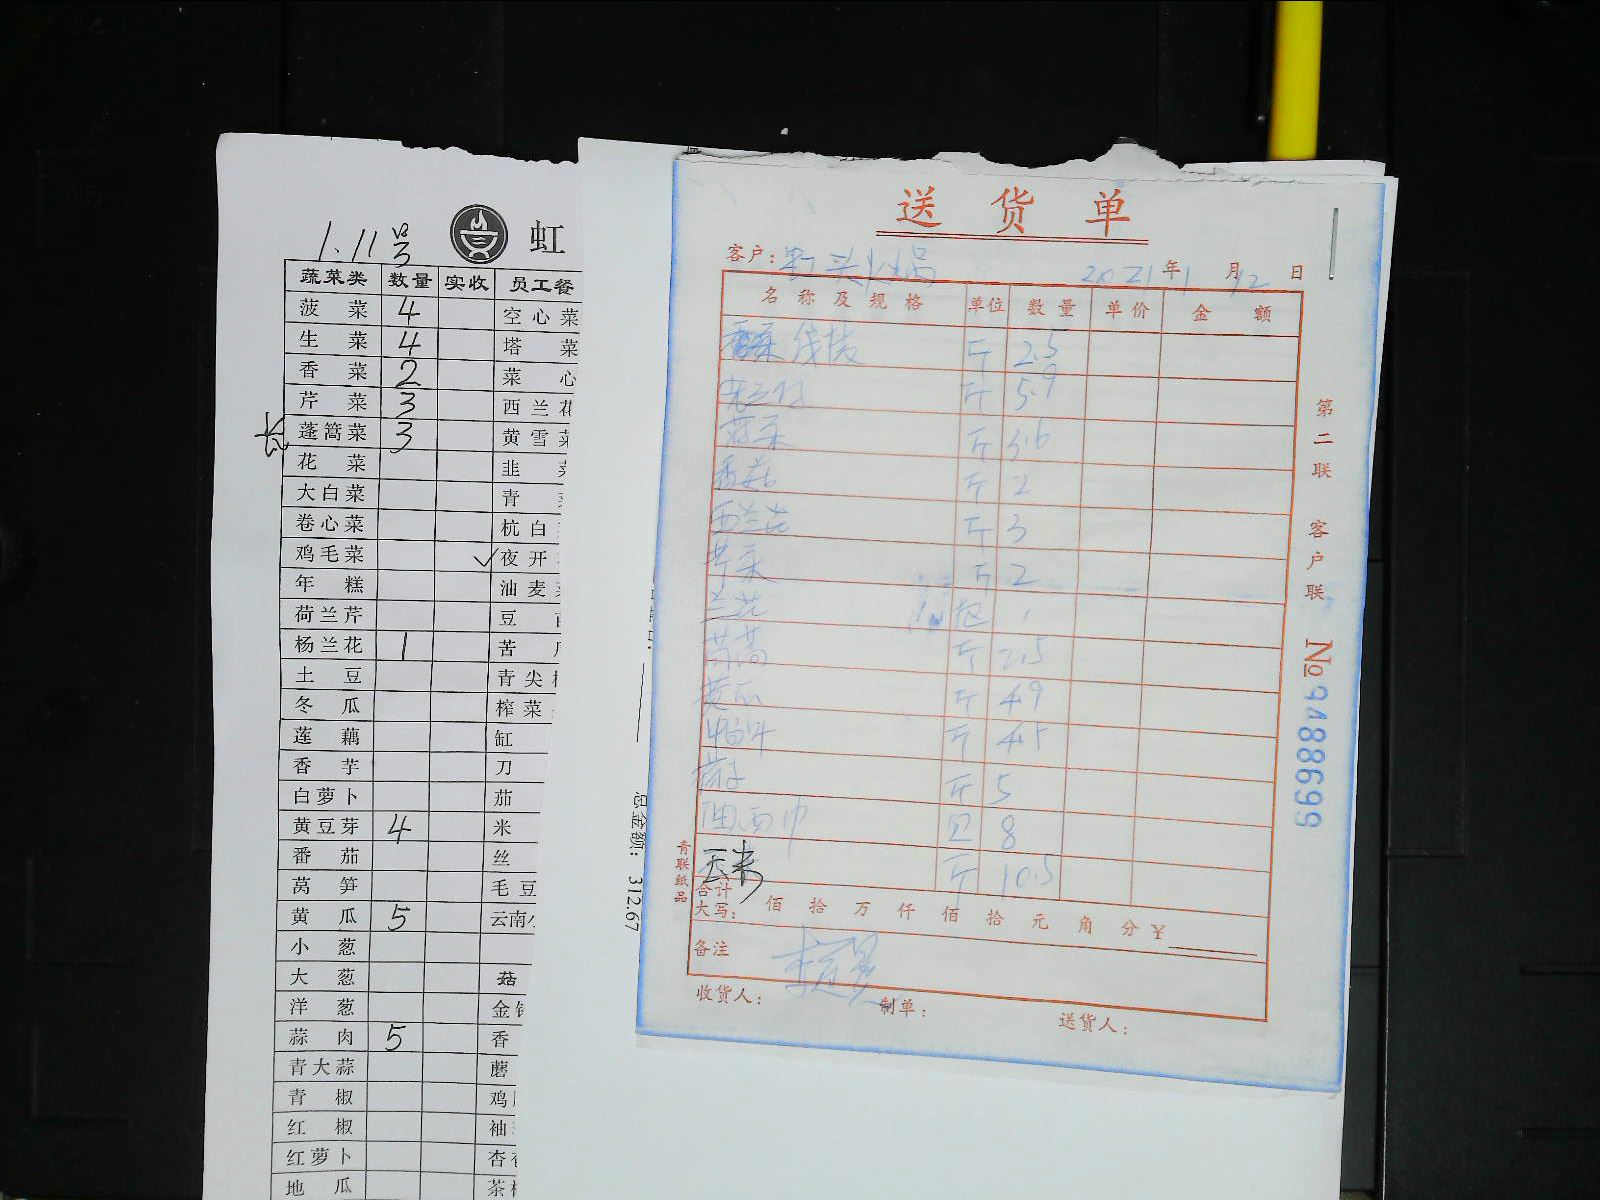 1.11号
虹
蔬菜类 数量 实收 员工餐
菠菜 4 空心菜
生菜 4 塔菜
香菜 2 菜心
芹菜 3 西兰花
长 蓬篙菜 3 黄雪菜
花菜 韭
大白菜 青
卷心菜 杭白
鸡毛菜 ✓夜开
年糕 油麦
荷兰芹 豆
杨兰花 1 苦
土豆 青尖
冬瓜 榨菜
莲藕 缸
香芋 刀
白萝卜 茄
黄豆芽 4 米
番茄 丝
莴笋 毛豆
黄瓜 5 云南小
小葱
大葱 菇
洋葱 金针
蒜肉 5 香
青大蒜 蘑
青椒 鸡
红椒 袖
红萝卜 杏
地瓜 茶
总金额: 312.67
送货单
客户: 虹头火锅 2021年1月12日
名称及规格 单位 数量 单价 金额
线椒 斤 2.5
斤 5.9
菠菜 斤 3.6
香菇 斤 2
西兰花 斤 3
芹菜 斤 2
兰花 包 1
茼蒿 斤 2.5
黄瓜 斤 4.9
斤 4.5
斤 5
8
玉米 斤 10.5
合计
大写: 佰 拾 万 仟 佰 拾 元 角 分 ¥
备注
收货人: 制单: 送货人:
青联纸品
第二联 客户联
№ 9488699